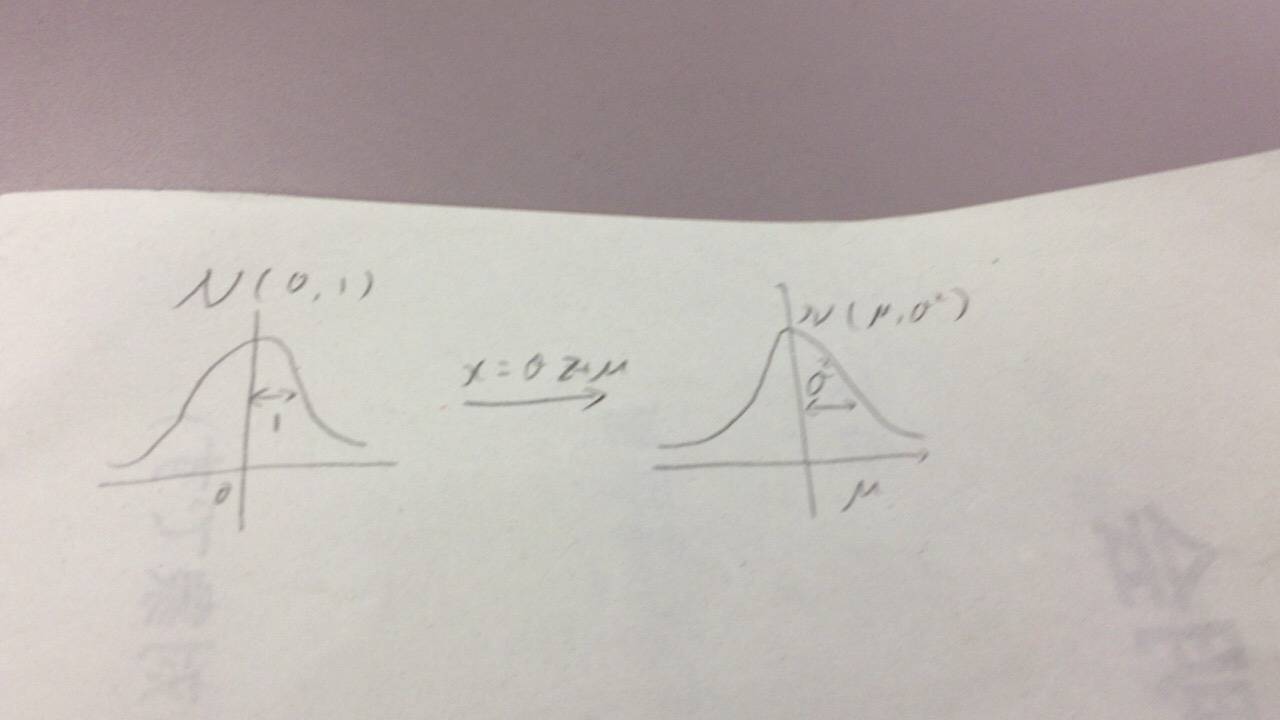 N(0,1)
1
0
x=σz+μ
N(μ,σ²)
σ
μ